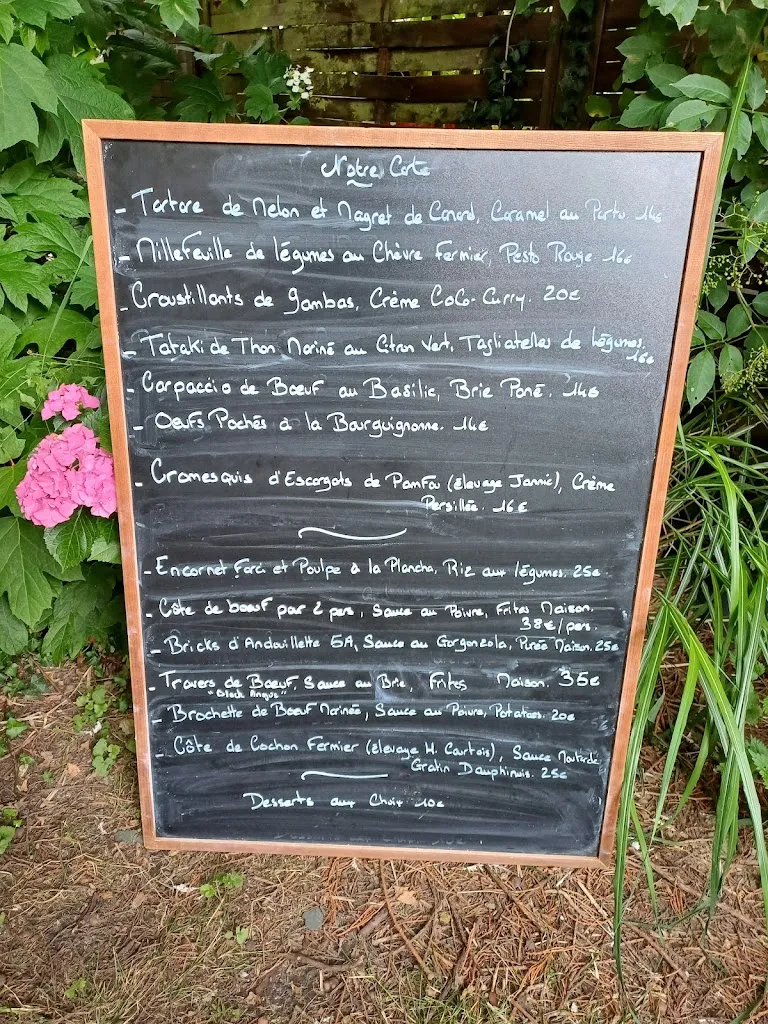 Notre Carte
- Tartare de Melon et Magret de Canard, Caramel au Porto 14€
- Millefeuille de légumes au Chèvre Fermier, Pesto Rouge 16€
- Croustillants de gambas, Crème CoCo-Curry. 20€
- Tataki de Thon Mariné au Citron Vert, Tagliatelles de légumes.
16€
- Carpaccio de Bœuf au Basilic, Brie Pané. 14€
- Oeufs Pochés à la Bourguignonne. 14€
- Cromesquis d'Escargots de Pamfou (élevage Jannic), Crème
Persillée. 16€
- Encornet Farci et Poulpe à la Plancha, Riz aux légumes. 25€
- Côte de bœuf par 2 pers, Sauce au Poivre, Frites Maison.
38€/pers.
- Bricks d'Andouillette 5A, Sauce au Gorgonzola, Purée Maison. 25€
- Travers de Bœuf, Sauce au Brie, Frites Maison. 35€
"Black Angus"
- Brochette de Bœuf Marinée, Sauce au Poivre, Potatoes. 20€
- Côte de Cochon Fermier (élevage M. Courtois), Sauce Moutarde
Gratin Dauphinois. 25€
Desserts aux Choix 10€